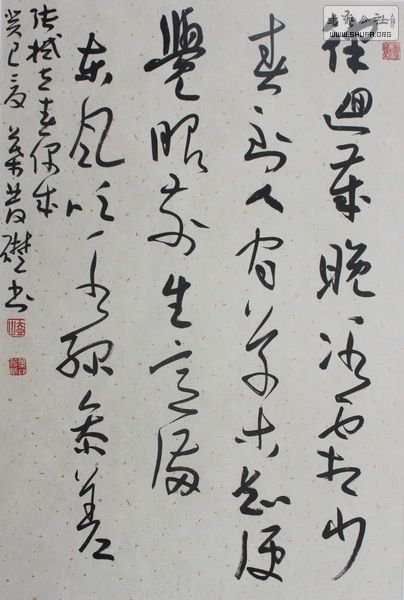 律迴歲晚冰霜少
春到人间草木知便
覺眼前生意满
东风吹水绿参差
张栻立春偶成
癸巳夏 书
公社
WWW.SHUFA.ORG